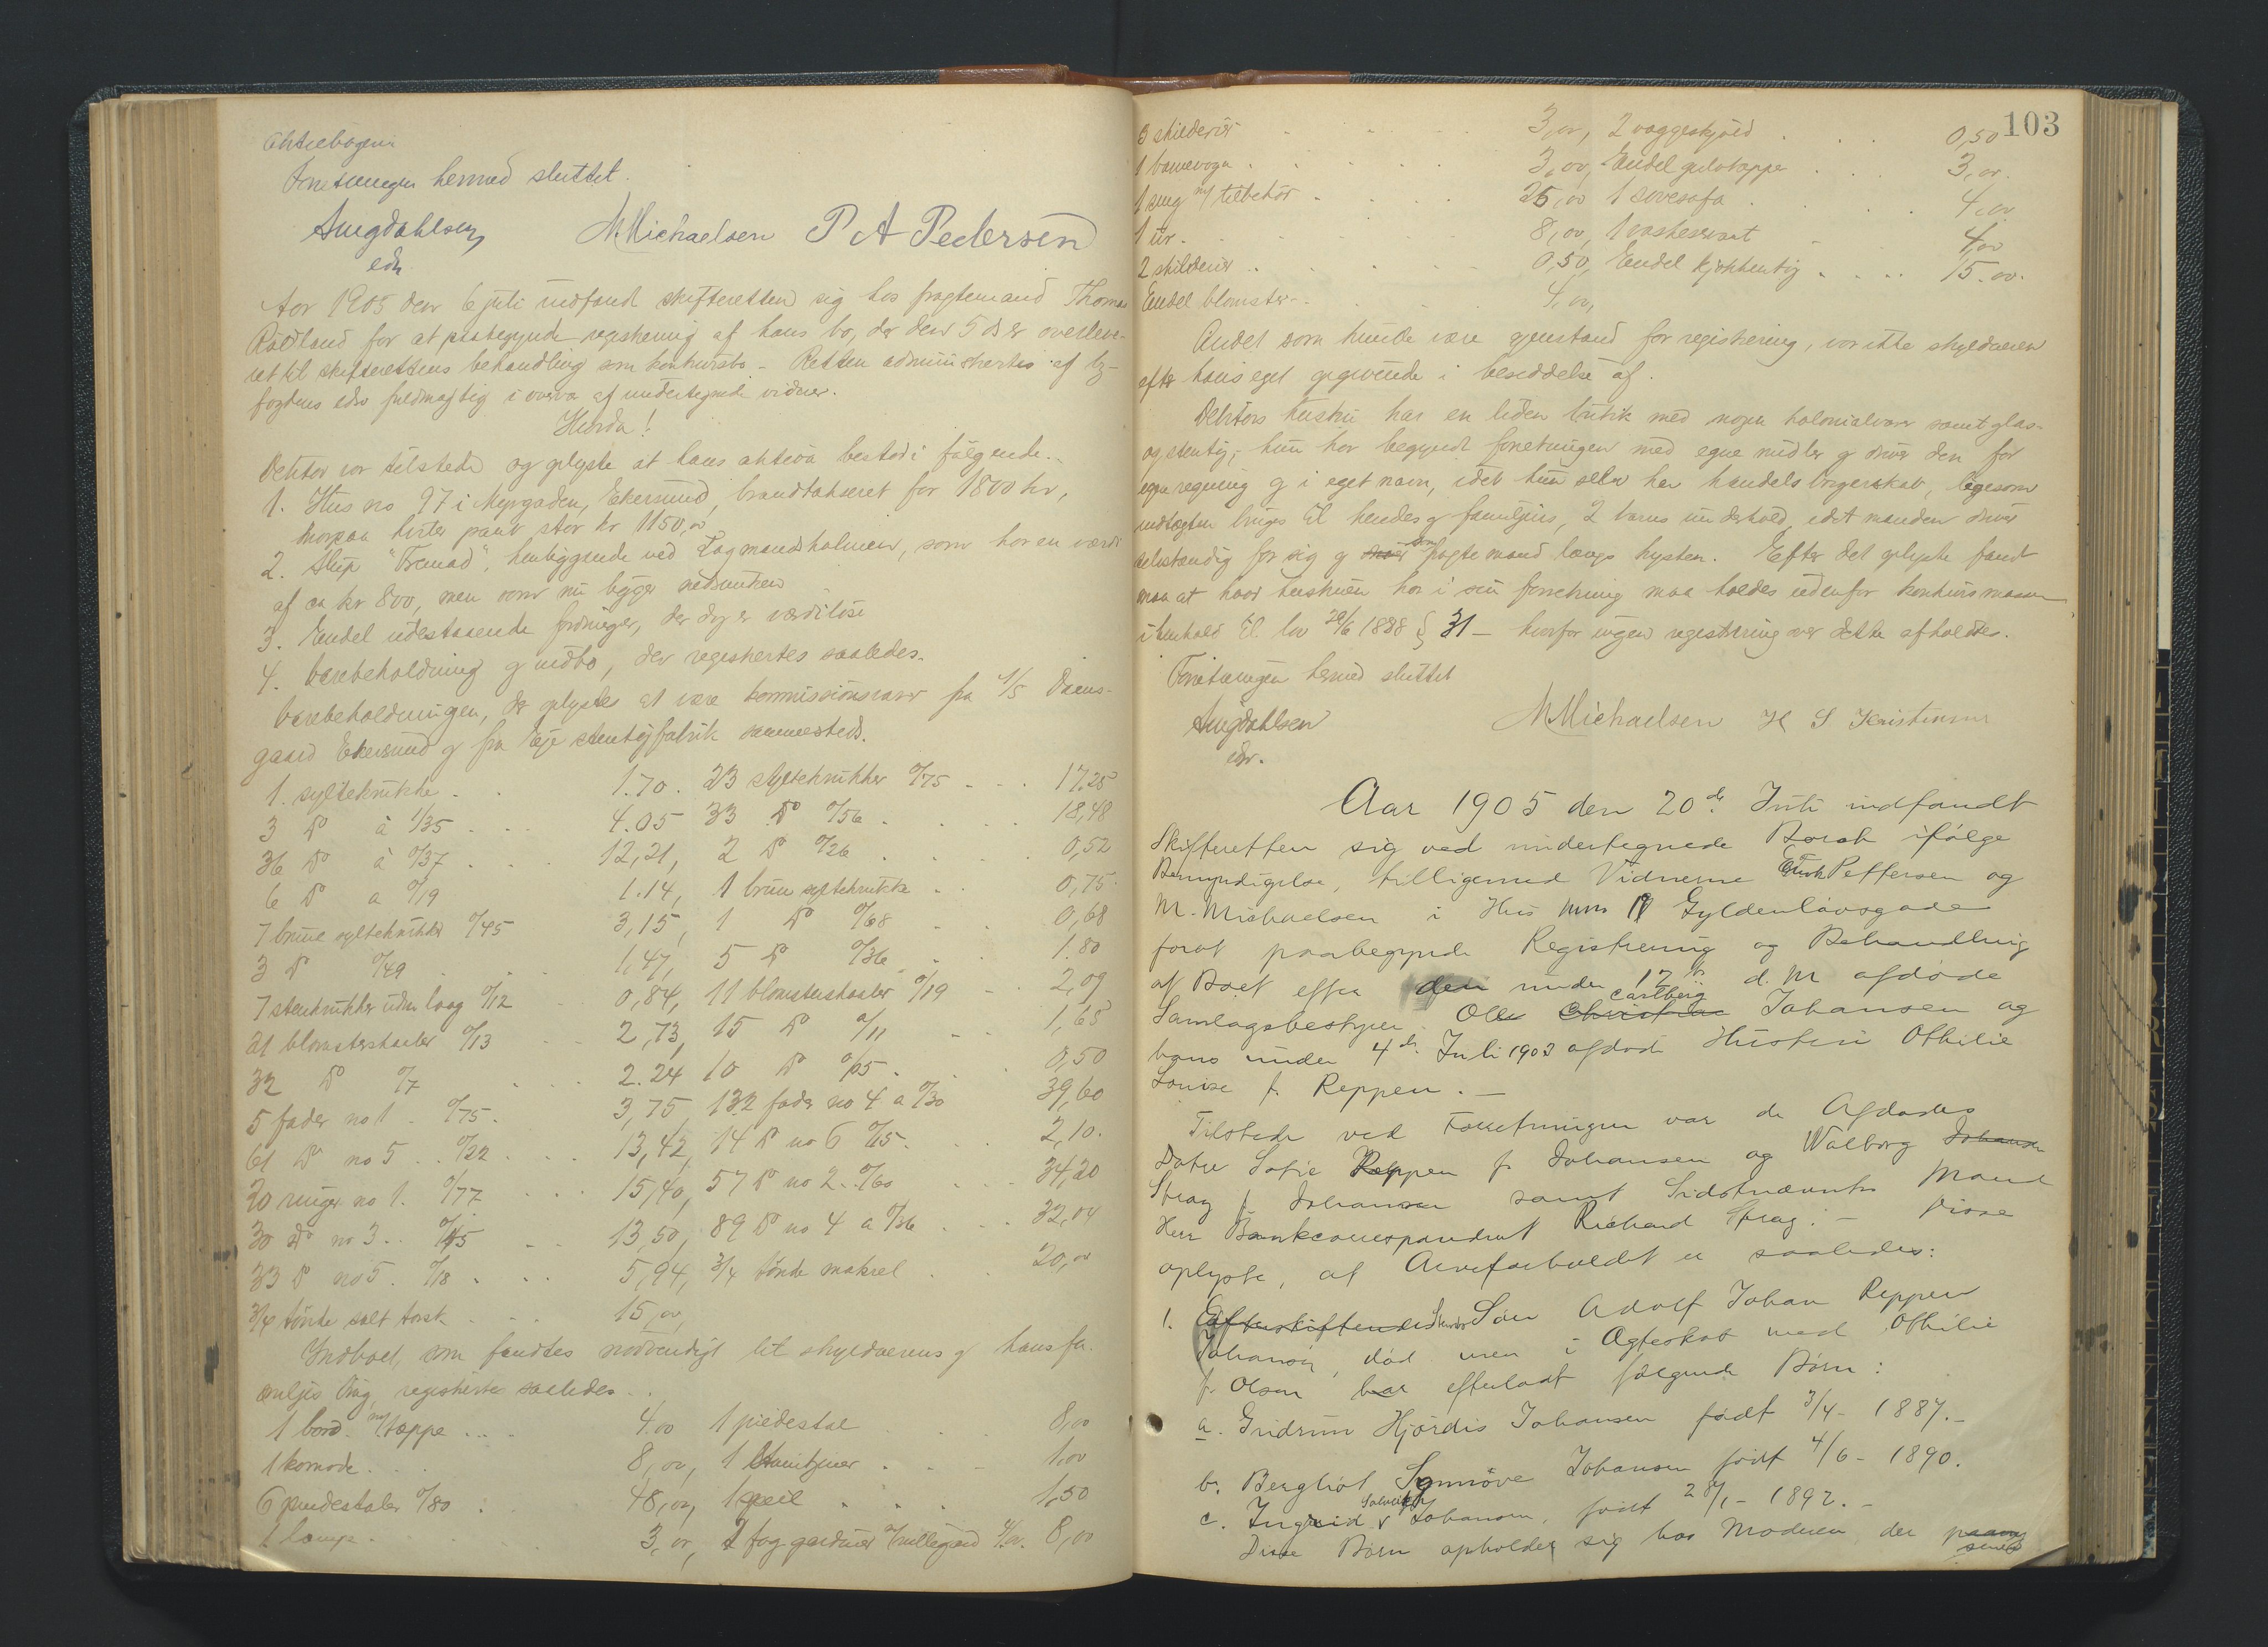 aktiebogen
Forretningen hermed sluttet.
Amgdahlsen M. Michaelsen P A Pedersen
edr
Aar 1905 den 6 juli indfandt skifteretten sig hos fragtemand Thomas
Rødland for at paabegynde registrering af hans bo, der den 5 ds er overleve-
ret til skifterettens behandling som konkursbo – Retten administrertes af by-
fogdens eds fuldmægtig i overvær af undertegnede vidner.
Hvorda!
Debitor var tilstede og oplyste at hans aktiva bestod i følgende..
1. Hus no 97 i Myrgaden, Ekersund, brandtakseret for 1800 kr,
hvorpaa hviler pant stor kr 1150,00
2. Slup "Fremad", henliggende ved Lagmandsholmen, som har en værdi
af ca kr 800, men som nu ligger nedsunken
3. Endel udestaaende fordringer, der dog er værdiløse
4. Varebeholdning og indbo, der registrertes saaledes.
Varebeholdningen, der oplystes at være kommissionsvarer fra A/S Daens-
gaard Ekersund og fra Eje stentøifabrik sammesteds.
1. syltekrukke . . 1.70. 23 syltekrukker o/75 . . . 17.25
3 do à 1/35 . . . 4.05 33 do o/56 . . . 18,48
36 do à o/37 . . . 12,21, 2 do o/26 . . . 0,52
6 do a o/19 1.14, 1 brun syltekrukke . . 0,75.
7 brune syltekrukker o/45 3,15, 1 do o/68 . . 0,68
3 do o/49 . . . 1,47, 5 do o/36 . . 1.80
7 stenkrukker uden laag o/12 . . 0,84, 11 blomsterskaaler o/19 . . 2,09
21 blomsterskaaler o/13 . . 2,73, 15 do o/11 . 1,65
32 do o/7 . . . 2.24 10 do o/05 . . . 0,50
5 fader no 1 . o/75. 3,75, 132 fader no 4 a o/30 39,60
61 do no 5 . . o/22 . . . 13,42, 14 do no 6 o/15 . . . 2,10.
20 ringer no 1. o/77 . . . 15,40, 57 do no 2. . o/60 . . . 34,20
30 do no 3. . o/45 . . 13,50, 89 do no 4 a o/36 . . . 32,04
33 do no 5. o/18 . . . 5,94, 3/4 tønde makrel . . 20,00
3/4 tønde salt torsk . . . 15,00,
Indboet, som fandtes nødvendigt til skyldnerens og hans fa-
miljes brug, registrertes saaledes . .
1 bord m/ tæppe . . . 4.00 1 piedestal . . . 8,00
1 komode . . . 8,00, 1 . . . 1,00
6 pindestoler o/80 . 48,00, 1 speil . . . 1,50
1 lampe . . . 3,00, 2 fag gardiner m/rullegardin 4/00. 8,00
103
3 skilderier . . . 3,00, 2 væggeskjold . . . 0,50
1 barnevogn . . . 3,00, Endel gulvtæpper . . . 3,00.
1 seng m/ tilbehør . . . 25,00 1 sovesofa . . . 4,00
1 ur . . . 8,00, 1 vaskeservant . 4,00
2 skilderier . . . 0,50, Endel kjøkkentøj . . . 15.00.
Endel blomster . . . 4,00,
Andet som kunde være gjenstand for registrering, var ikke skyldneren
efter hans eget opgivende i besiddelse af.
Debitors hustru har en liden butik med nogen kolonialvarer samt glas-
og stentøj, hun har begyndt forretningen med egne midler og driver den for
egen regning og i eget navn, idet hun selv har handelsborgerskab, ligesom
indtægten bruges til hendes og familjens, 2 barns underhold, idet manden driver
selvstændig for sig og som fragtemand langs kysten. Efter det oplyste fandt
man at hvad hustruen har i sin forretning maa holdes udenfor konkursmassen
i henhold til lov 29/6 1888 § 31 – hvorfor ingen registrering over dette afholdtes.
Forretningen hermed sluttet
Amgdahlsen M Michaelsen H S Kristensen
edr.
Aar 1905 den 20de Juli indfandt
Skifteretten sig ved undertegnede Borch ifølge
Bemyndigelse, tilligemed Vidnerne Pettersen og
M. Michaelsen i Hus Gyldenløvsgaden
forat paabegynde Registrering og Behandling
af Boet efter den under 17de d. M afdøde
Samlagsbestyrer Ole Christian Cartberg Johansen og
hans under 4de Juli 1903 afdøde Hustru Othilie
Louise f. Reppen. –
Tilstede ved Forretningen var de Afdødes
Døtre Sofie Reppen f. Johansen og Walborg Johansen
Stray f. Johansen samt Sidstnævntes Mand
Herr Bankcorrespondent Richard Stray. – Disse
oplyste, at Arveforholdet er saaledes:
1. Søn Adolf Johan Reppen
Johansen, død men i Ægteskab med Othilie
f. Olsen har efterladt følgende Børn:
a. Gudrun Hjørdis Johansen født 3/4 – 1887. –
b. Bergliot Synnøve Johansen født 4/6 – 1890.
c. Ingrid Solveig Johansen, født 28/1 – 1892. –
Disse Børn opholder sig hos Moderen der